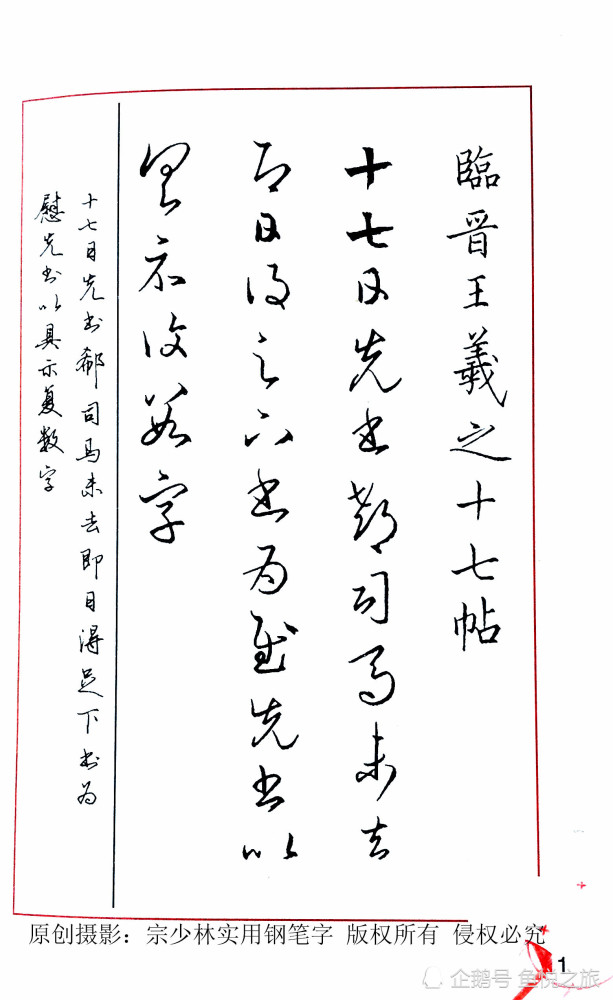 臨晋王羲之十七帖
十七日先书郗司马未去
即日得足下书为慰先书以
具示复数字
十七日先书郗司马未去即日得足下书为
慰先书以具示复数字
原创摄影：宗少林实用钢笔字 版权所有 侵权必究
1
企鹅号 鱼悦之旅